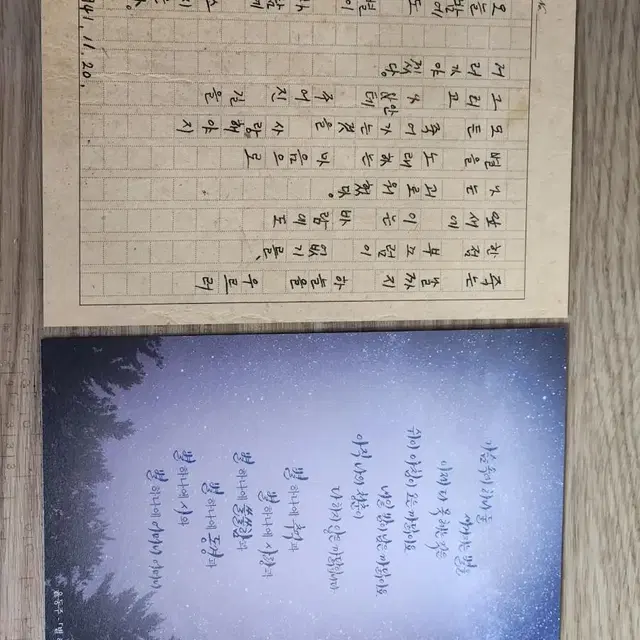 죽는 날까지 하늘을 우르러
한점 부끄럼이 없기를,
잎새에 이는 바람에도
나는 괴로워했다.
별을 노래하는 마음으로
모든 죽어가는것을 사랑해야지
그리고 나안테 주어진 길을
거러가야겠다.
오늘밤에도 별이
941. 11. 20.
가슴 속에 하나 둘
새겨지는 별을
이제 다 못 헤는 것은
쉬이 아침이 오는 까닭이요
내일 밤이 남은 까닭이요
아직 나의 청춘이
다하지 않은 까닭입니다
별 하나에 추억과
별 하나에 사랑과
별 하나에 쓸쓸함과
별 하나에 동경과
별 하나에 시와
별 하나에 어머니, 어머니
윤동주 '별